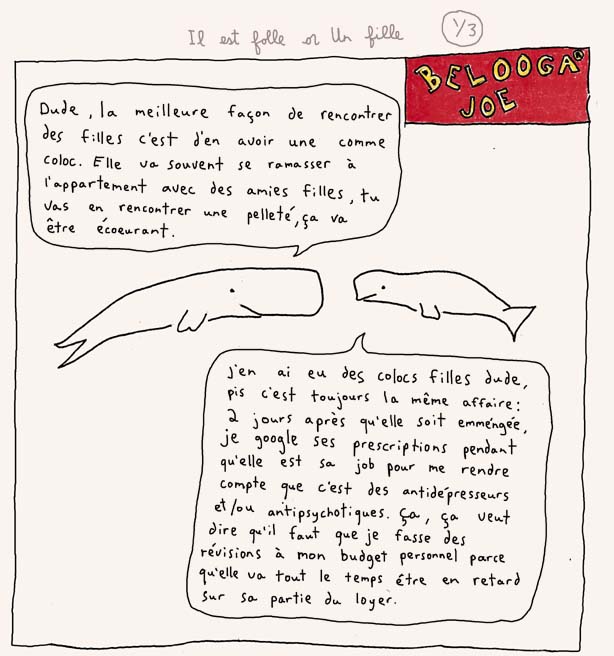 Il est folle or Un fille
1/3
BELOOGA
JOE
Dude, la meilleure façon de rencontrer
des filles c'est d'en avoir une comme
coloc. Elle va souvent se ramasser à
l'appartement avec des amies filles, tu
vas en rencontrer une pelleté, ça va
être écoeurant.
J'en ai eu des colocs filles dude,
pis c'est toujours la même affaire:
2 jours après qu'elle soit emméngée,
je google ses prescriptions pendant
qu'elle est sa job pour me rendre
compte que c'est des antidépresseurs
et/ou antipsychotiques. Ça, ça veut
dire qu'il faut que je fasse des
révisions à mon budget personnel parce
qu'elle va tout le temps être en retard
sur sa partie du loyer.